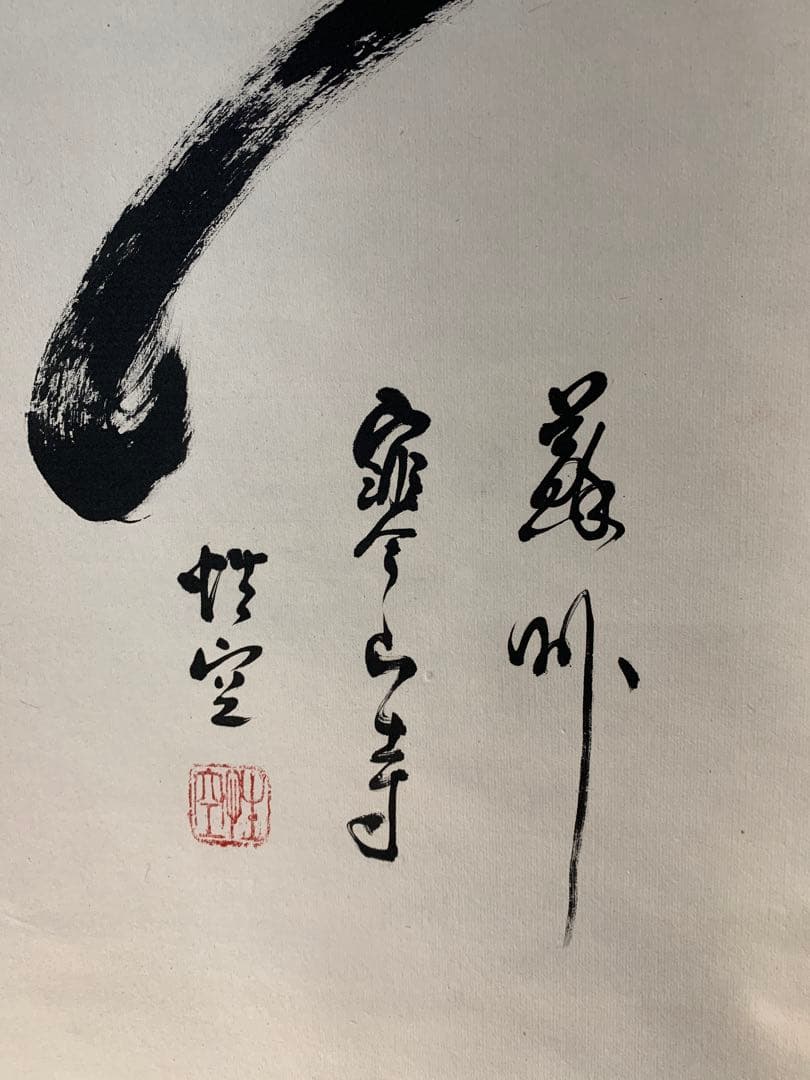 蘇州
寒山寺
性空
性空